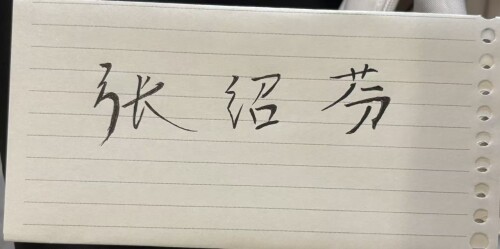 张绍芬